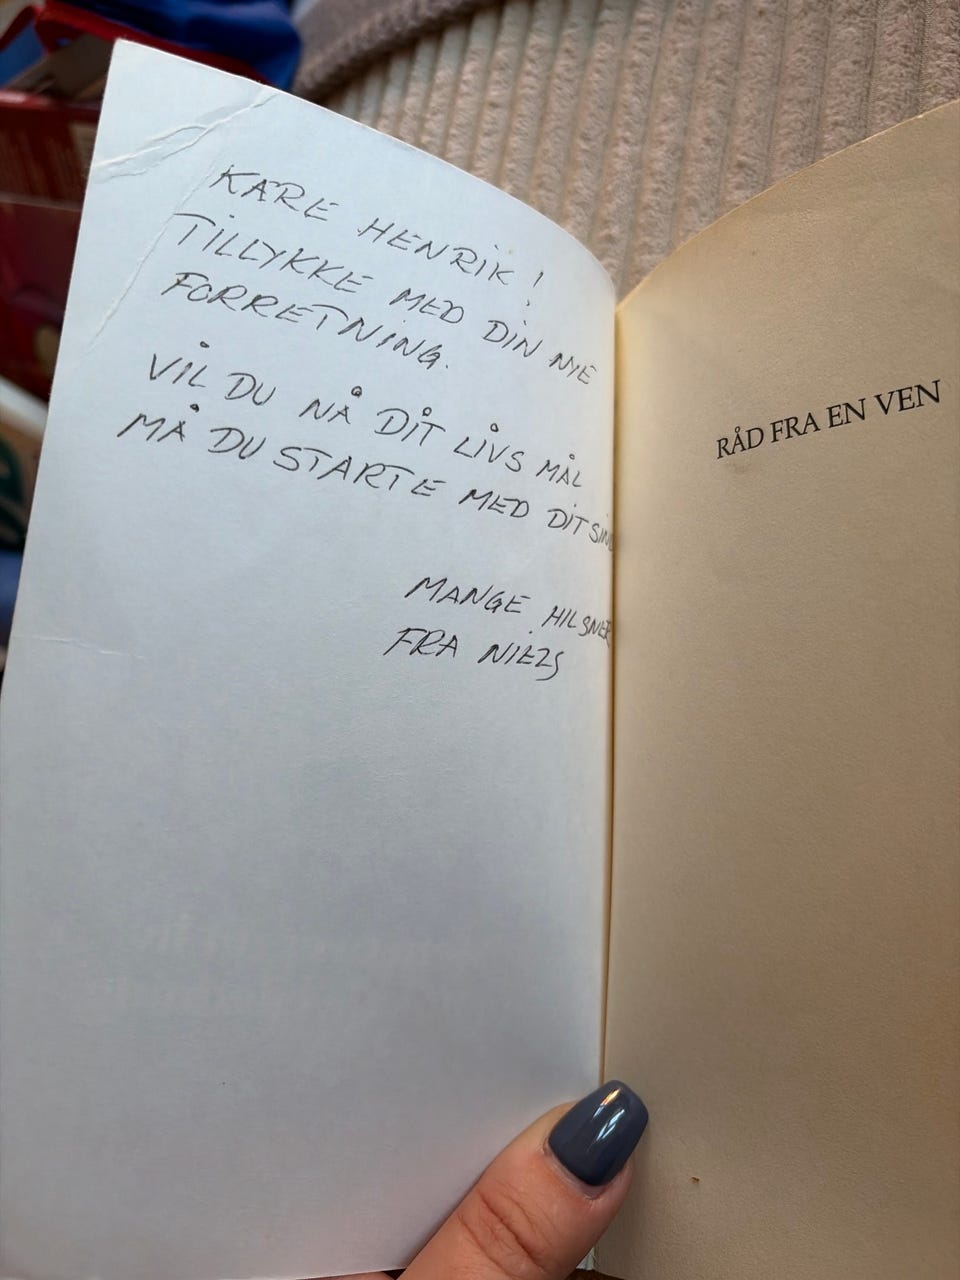 KARE HENRIK!
TILLYKKE MED DIN NYE
FORRETNING.
VIL DU NÅ DIT LIVS MÅL
MÅ DU STARTE MED DIT
MANGE HILSNER
FRA NIELS
RÅD FRA EN VEN